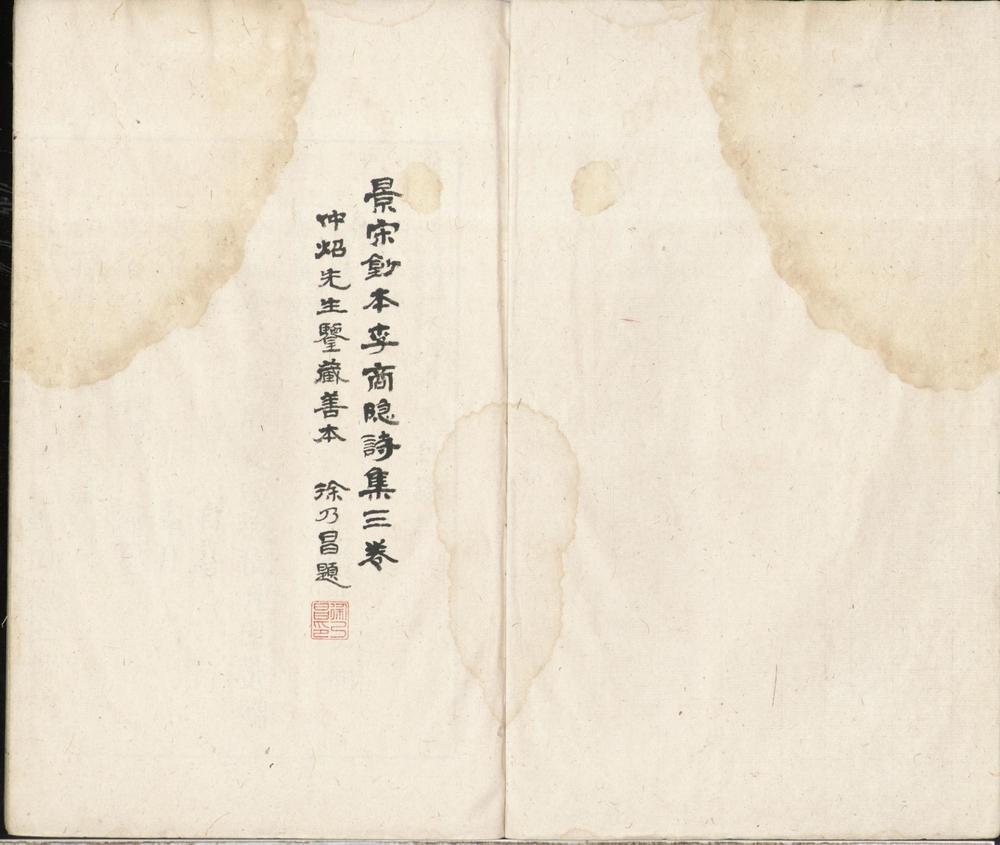 景宋鈔本李商隐詩集三卷
仲炤先生鑒藏善本　徐乃昌題
徐乃昌印